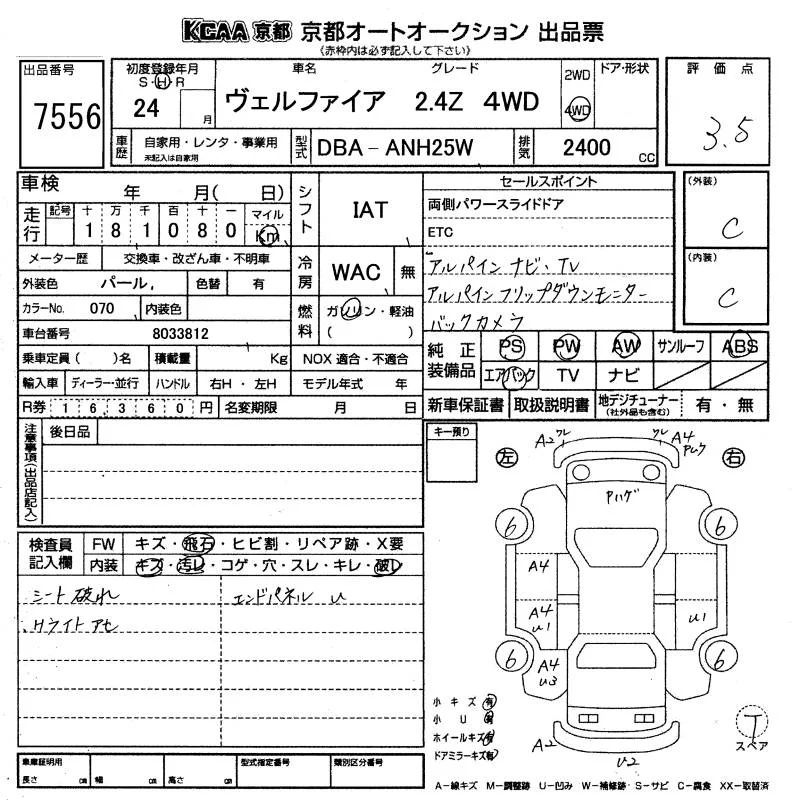 KCAA 京都 京都オートオークション 出品票
(赤枠内は必ず記入して下さい)
出品番号
7556
初度登録年月
S・H・R
24 月
車名 グレード
ヴェルファイア 2.4Z 4WD
2WD
4WD
ドア・形状
評価点
3.5
車歴
自家用・レンタ・事業用
未記入は自家用
型式
DBA-ANH25W
排気
2400 CC
車検 年 月( 日)
走行
記号 十 万 千 百 十 一 マイル
1 8 1 0 8 0 Km
メーター歴 交換車・改ざん車・不明車
外装色 パール. 色替 有
カラーNo. 070 内装色
車台番号 8033812
乗車定員( )名 積載量 Kg
輸入車 ディーラー・並行 ハンドル 右H・左H
R券 16,360円 名変期限 月 日
シフト
IAT
冷房
WAC 無
燃料
ガソリン・軽油
( )
NOX 適合・不適合
モデル年式 年
セールスポイント
両側パワースライドドア
ETC
アルパイン ナビ、TV
アルパインフリップダウンモニター
バックカメラ
(外装)
C
(内装)
C
純正装備品
PS PW AW サンルーフ ABS
エアバック TV ナビ
新車保証書 取扱説明書 地デジチューナー
(社外品も含む)
有・無
注意事項(出品店記入)
後日品
キー預り
検査員記入欄
FW キズ・飛石・ヒビ割・リペア跡・X要
内装 キズ・汚レ・コゲ・穴・スレ・キレ・破レ
シート破れ
エンドパネル U
H.ライトアセ
左
右
A2 ワレ
ワレ A4
Pハゲ
6
6
A4
A4
U1
U1
6
6
A4
U3
A2
U2
小キズ 有
小U 有
ホイールキズ 有
ドアミラーキズ 有
T
スペア
車庫証明用
長さ cm 幅 cm 高さ cm
型式指定番号
類別区分番号
A-線キズ M-調整跡 U-凹み W-補修跡・S-サビ C-腐食 XX-取替済